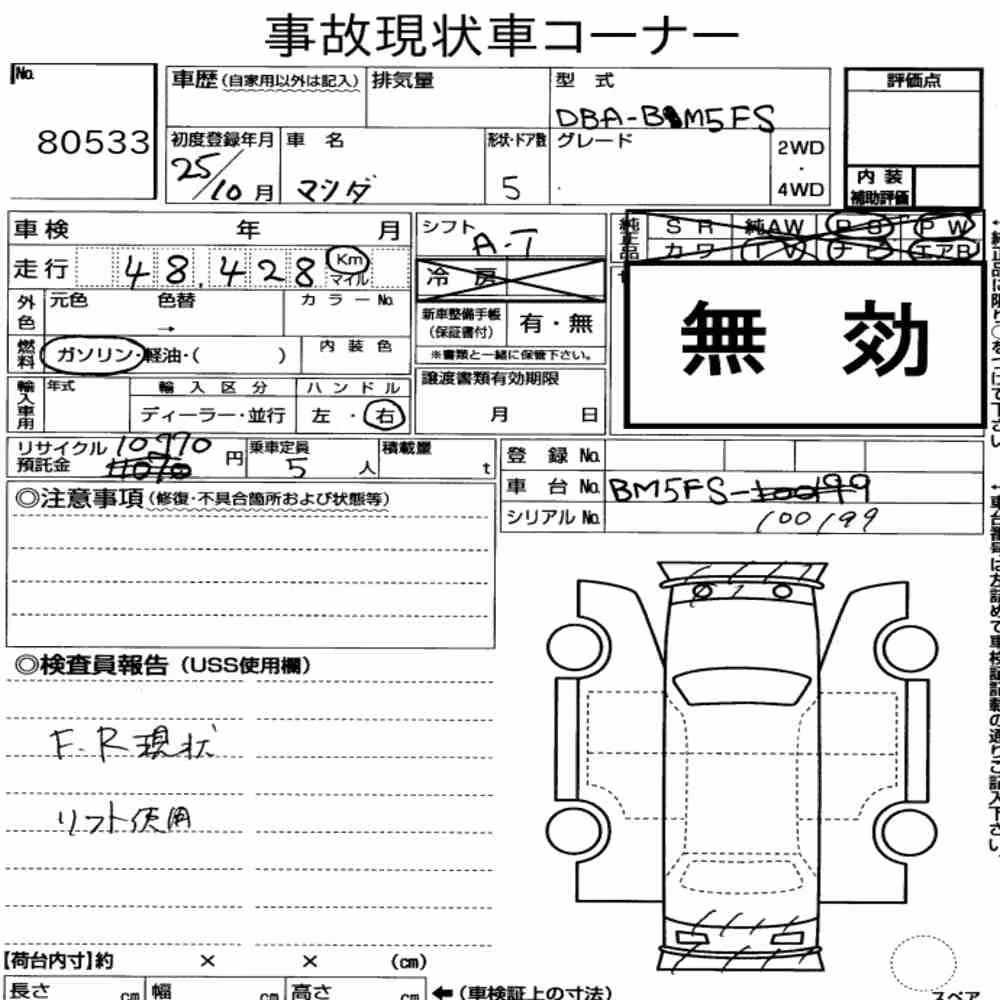 事故現状車コーナー
No.
80533
車歴(自家用以外は記入)
排気量
型式
DBA-BM5FS
評価点
初度登録年月
25/10月
車名
マツダ
形状・ドア数
5
グレード
2WD
・
4WD
内装
補助評価
車検 年 月
シフト
A-T
純正品
SR 純AW PS PW
カワ TV ナビ エアB
走行 48,428 Km
マイル
冷房
無効
外色
元色 色替
→
カラーNo.
新車整備手帳
(保証書付)
有・無
※書類と一緒に保管下さい。
燃料
ガソリン・軽油・( )
内装色
輸入車用
年式
輸入区分
ディーラー・並行
ハンドル
左・右
譲渡書類有効期限
月 日
リサイクル
預託金
10970
円
乗車定員
5人
積載量
t
登録No.
車台No. BM5FS-
シリアルNo. 100199
◎注意事項(修復・不具合箇所および状態等)
◎検査員報告(USS使用欄)
F.R現状
リフト使用
【荷台内寸】約 × × (cm)
長さ cm 幅 cm 高さ cm
←(車検証上の寸法)
スペア
←車台番号は左詰めで車検証記載の通りご記入下さい。